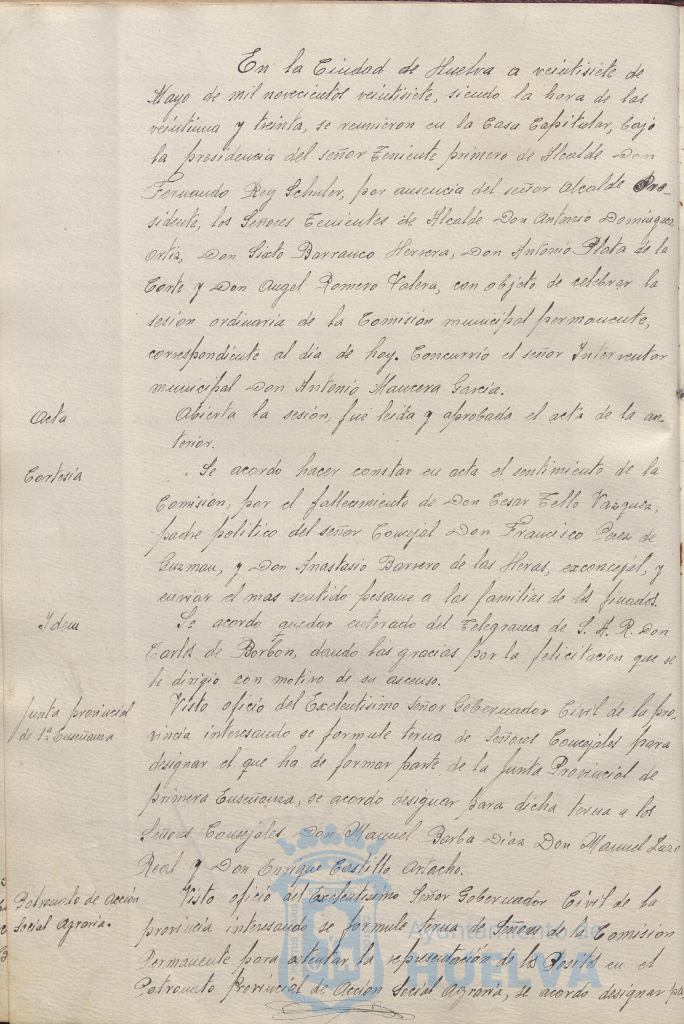 En la Ciudad de Huelva a veintisiete de
Mayo de mil novecientos veintisiete, siendo la hora de las
veintiuna y treinta, se reunieron en la Casa Capitular, bajo
la presidencia del señor Teniente primero de Alcalde Don
Fernando Rey Schuler, por ausencia del señor Alcalde Pre-
sidente, los Señores Tenientes de Alcalde Don Antonio Dominguez
Ortiz, Don Sixto Barranco Herrera, Don Antonio Plata de la
Corte y Don Angel Romero Valera, con objeto de celebrar la
sesion ordinaria de la Comisión municipal permanente,
correspondiente al dia de hoy. Concurrió el señor Interventor
municipal Don Antonio Maucera Garcia.
Acta
Abierta la sesión, fué leida y aprobada el acta de la an-
terior.
Cortesia
Se acordo hacer constar en acta el sentimiento de la
Comision, por el fallecimiento de Don Cesar Tello Vazquez,
padre politico del señor Concejal Don Francisco Perez de
Guzman, y Don Anastasio Barrero de las Heras, exconcejal, y
enviar el mas sentido pesame a las familias de los finados.
Idem
Se acordo quedar enterado del Telegrama de S. A. R. Don
Carlos de Borbon, dando las gracias por la felicitacion que se
le dirigio con motivo de su ascenso.
Junta provincial
de 1ª Enseñanza
Visto oficio del Excelentisimo Señor Gobernador Civil de la pro-
vincia interesando se formule terna de Señores Concejales para
designar el que ha de formar parte de la Junta Provincial de
primera Enseñanza, se acordo designar para dicha terna a los
Señores Consejales Don Manuel Barba Diaz Don Manuel
Real y Don Enrique Castillo Artacho.
Patronato de Acción
Social Agraria.
Visto oficio del Excelentisimo Señor Gobernador Civil de la
provincia interesando se formule terna de Señores de la Comision
Permanente para ostentar la representación de los Positos en el
Patronato Provincial de Acción Social Agraria, se acordo designar pa
Ayuntamiento de
HUELVA